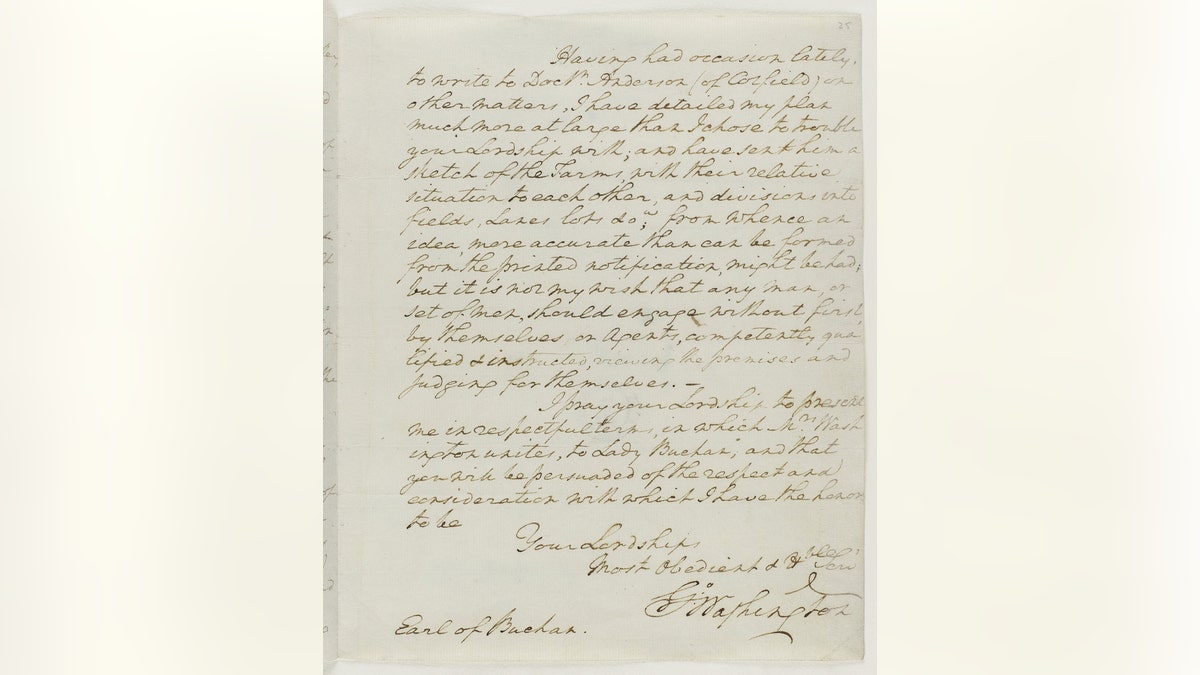 25
Having had occasion lately,
to write to Doctr. Anderson (of Cotfield) on
other matters, I have detailed my plan
much more at large than I chose to trouble
your Lordship with; and have sent him a
sketch of the Farms, with their relative
situation to each other, and divisions into
fields, Lanes lots &ca; from whence an
idea, more accurate than can be formed
from the printed notification, might be had;
but it is not my wish that any man, or
set of men, should engage without first,
by themselves, or Agents, competently qua
lified & instructed, viewing the premises and
judging for themselves. —
I pray your Lordship to present
me in respectful terms, in which Mrs. Wash
ington unites, to Lady Buchan; and that
you will be persuaded of the respect and
consideration with which I have the honor
to be
Your Lordships
Most Obedient & Hble Serv
Go. Washington
Earl of Buchan.